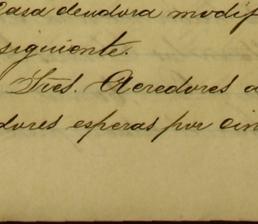 Casa deudora modif
siguiente.
Sres. Acredores a
dores esperas por cin